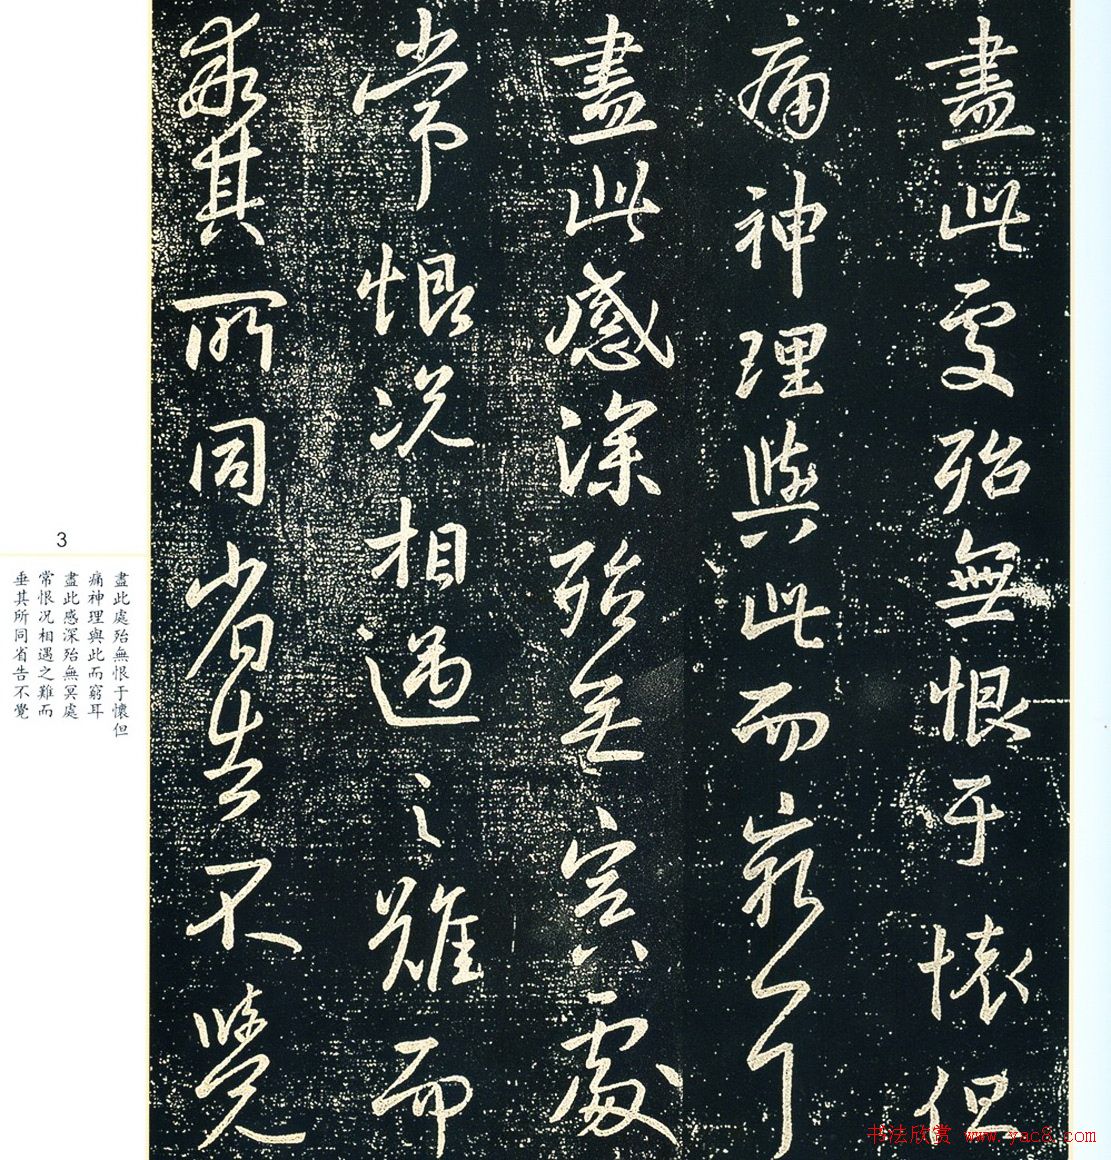 盡此處殆無恨于懷但
痛神理與此而窮耳
盡此感深殆無冥處
常恨况相遇之難而
乖其所同省告不覺
3
盡此處殆無恨于懷但
痛神理與此而窮耳
盡此感深殆無冥處
常恨况相遇之難而
垂其所同省告不覺
书法欣赏 www.yac8.com